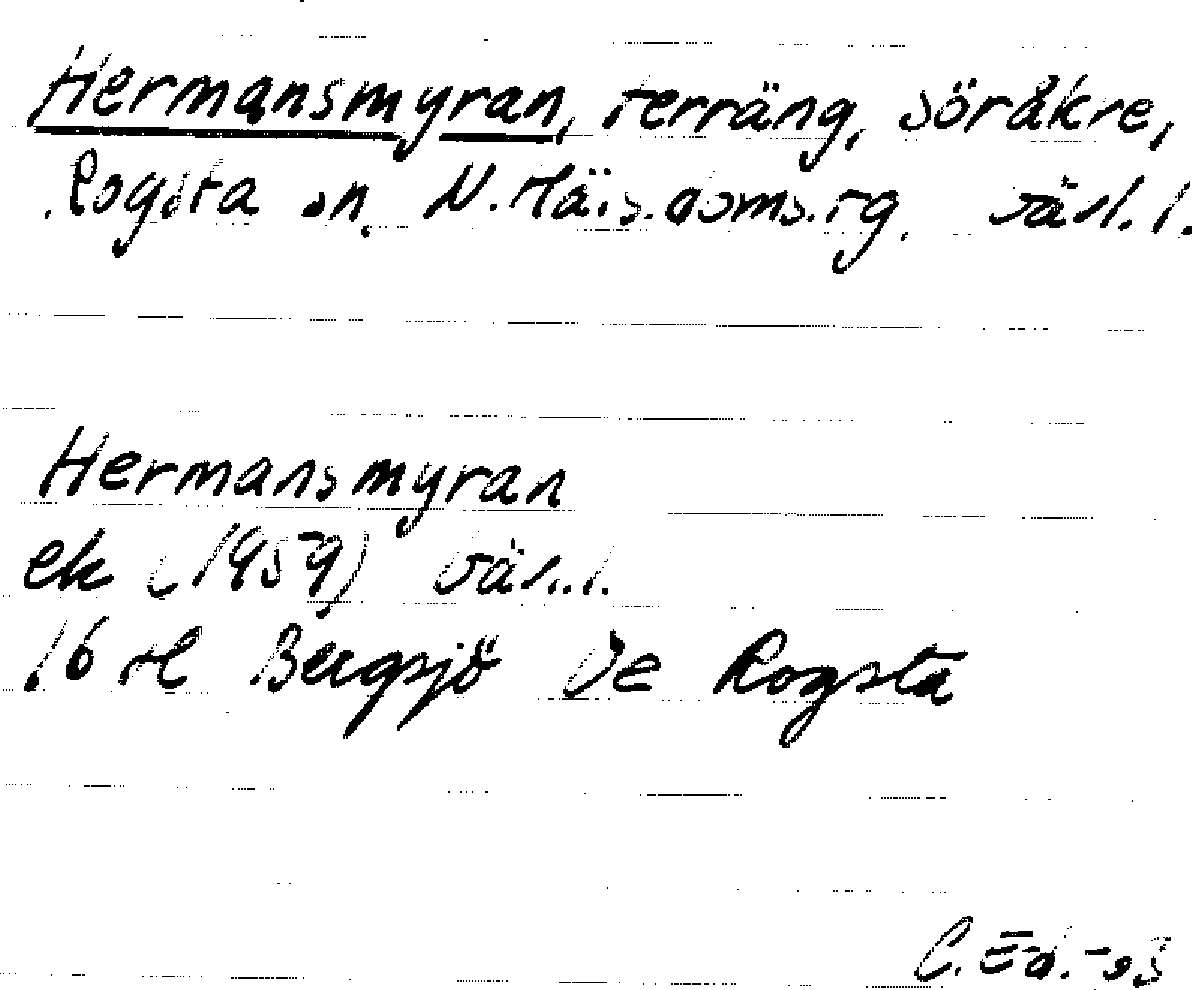 Hermansmyran, terräng, Söråkre,
Rogsta sn, N. Häls. doms.rg. Gävl. l.
Hermansmyran
ek (1959) Gävl. l.
16 H Bergsjö Rogsta
C. Ed. -83